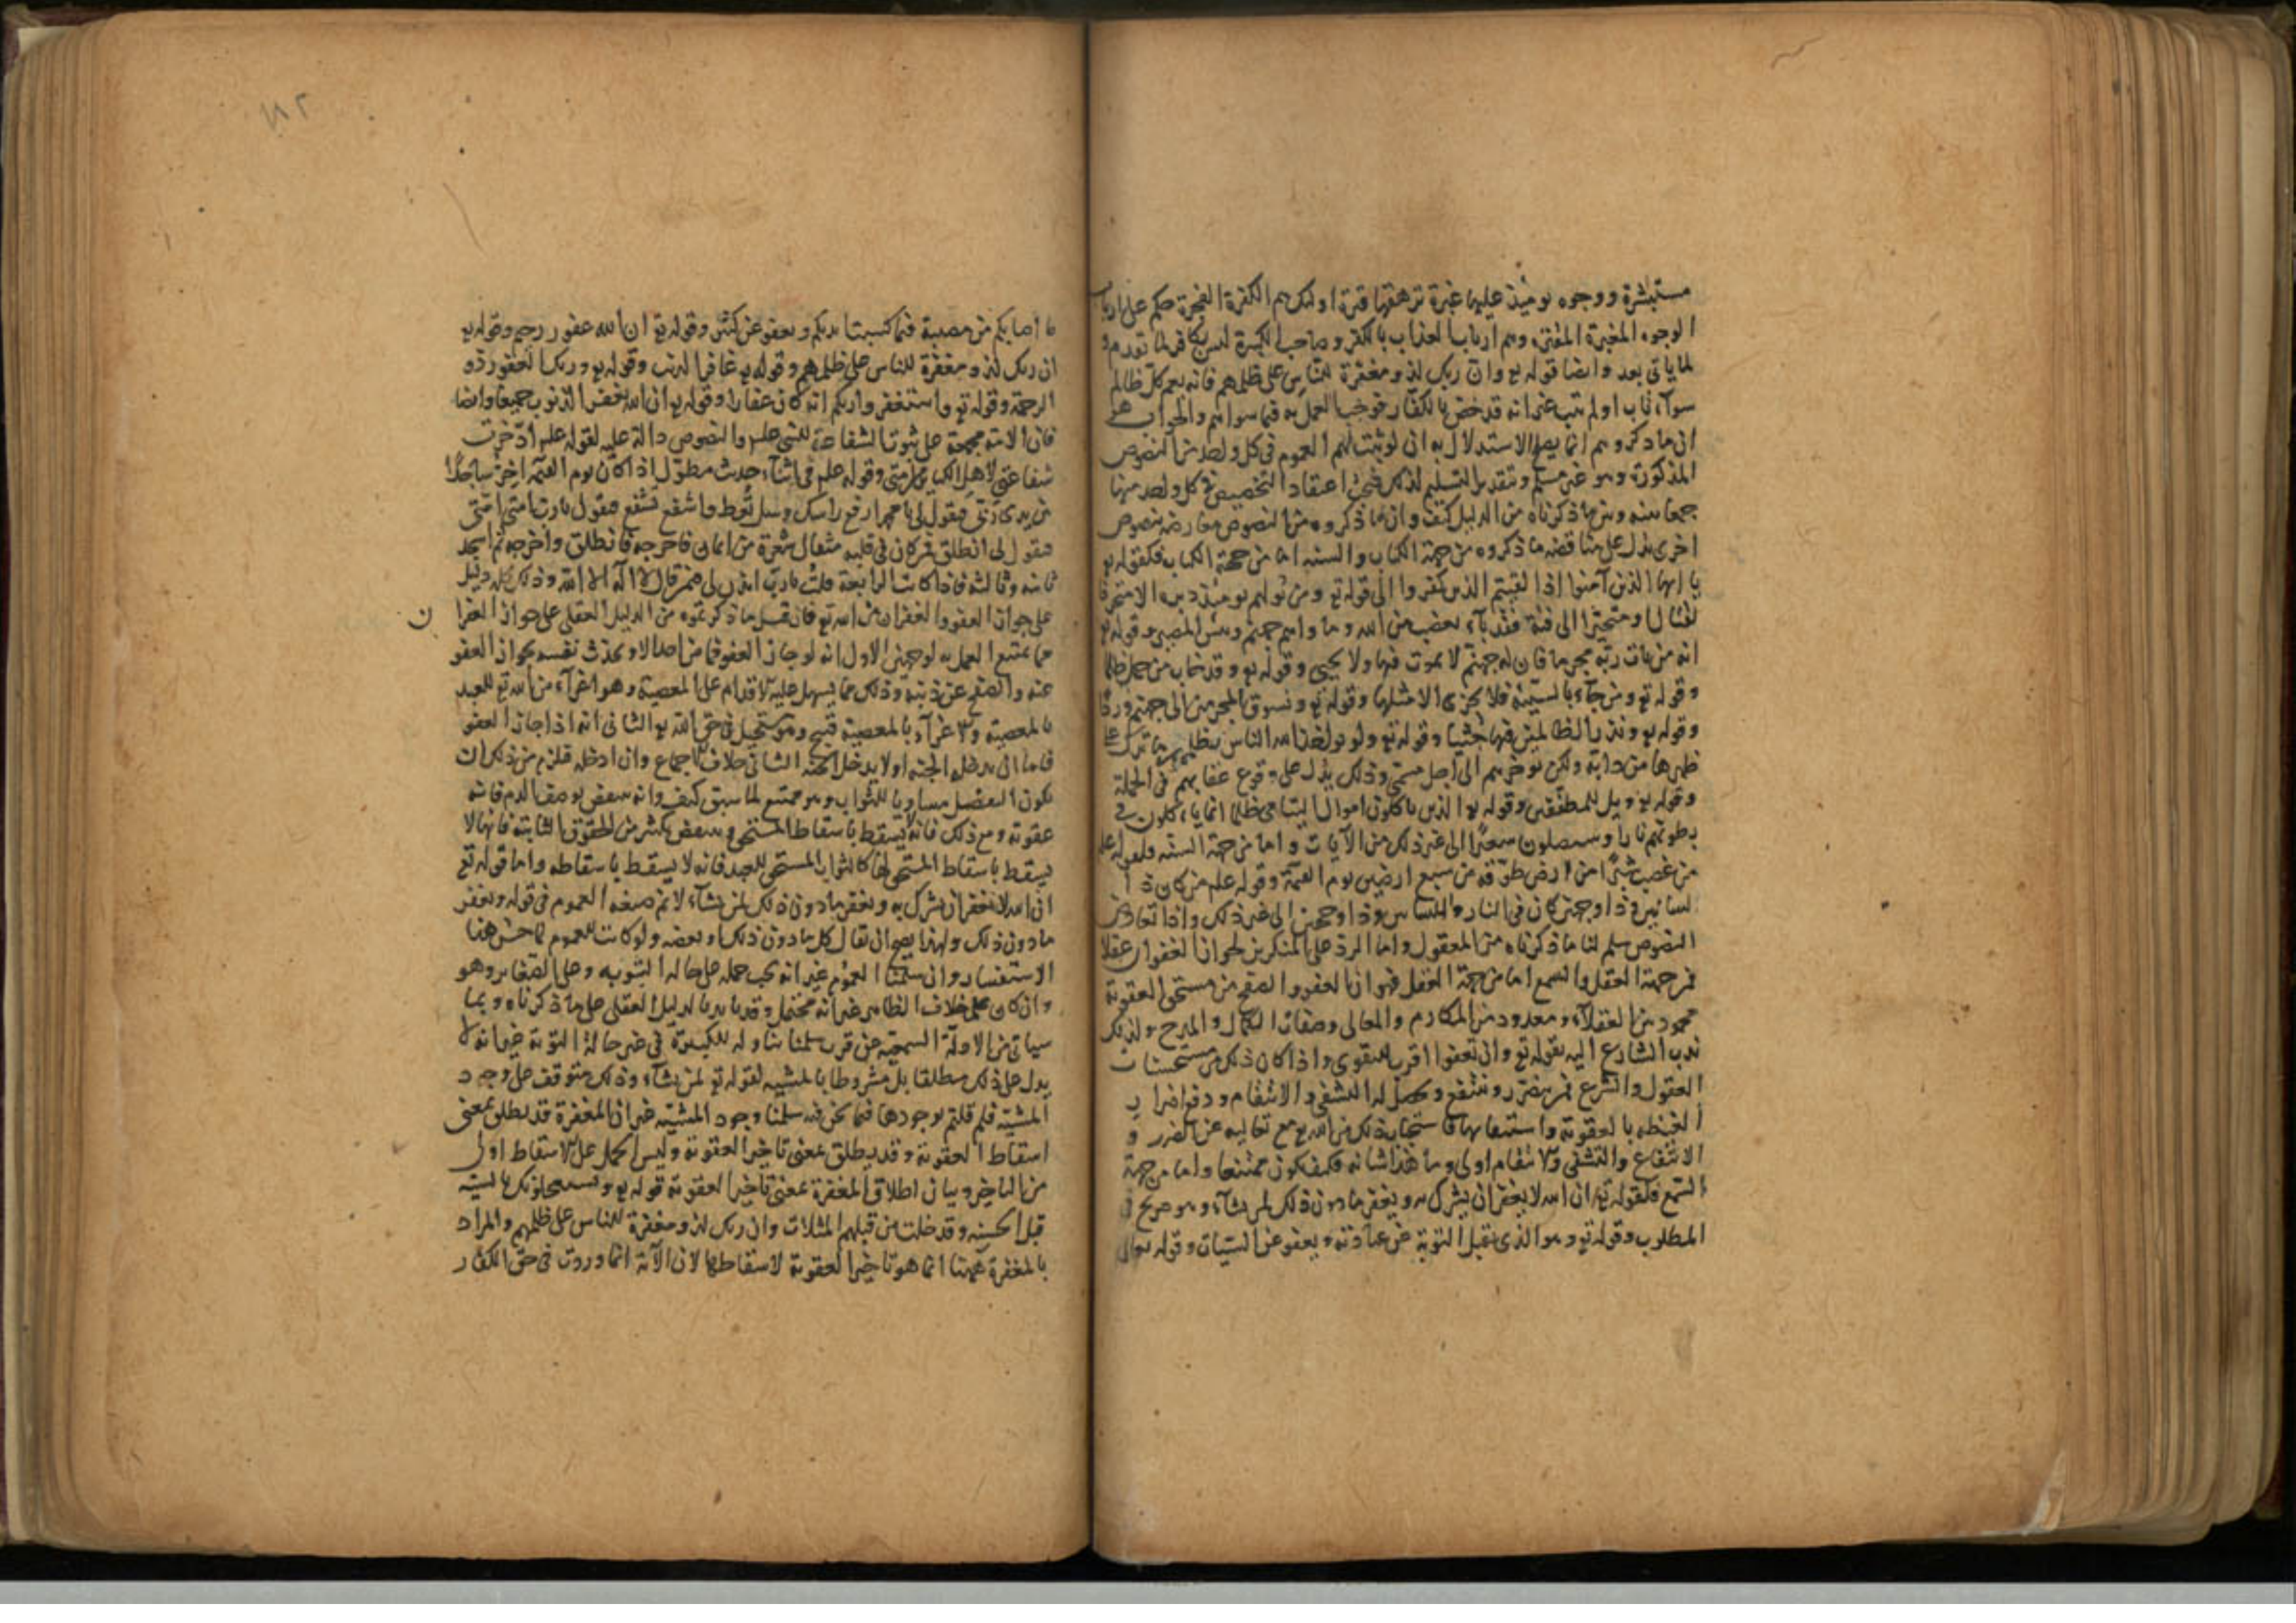 مستبشرة ووجوه يومئذ عليها غبرة ترهقها قترة اولئك هم الكفرة الفجرة حكم على ارباب
الوجوه المغبرة المقترة وهم ارباب العذاب بالكفر وصاحب الكبيرة ليس بكافر لما تقدم و
لما ياتى بعد وايضا قوله تع وان ربك لذو مغفرة للناس على ظلمهم فانه يعم كل ظالم
سوآء تاب او لم يتب غير انه قد خص بالكفار فوجب العمل به فيما سواهم والجواب هو
ان ما ذكروه انما يصح الاستدلال به ان لو ثبت لهم العموم فى كل واحد من النصوص
المذكورة وهو غير مسلم وبتقدير التسليم لذلك فيجب اعتقاد التخصيص فى كل واحد منها
جمعا بينه وبين ما ذكرناه من الدليل كيف وان ما ذكروه من النصوص معارضة بنصوص
اخرى تدل على مناقضة ما ذكروه من جهة الكتاب والسنه اما من جهة الكتاب فكقوله تع
يا ايها الذين آمنوا اذا لقيتم الذين كفروا الى قوله تع ومن يولهم يومئذ دبره الا متحرفا
لقتال او متحيزا الى فئة فقد بآء بغضب من الله وماواهم جهنم وبئس المصير وقوله تع
انه من يات ربه مجرما فان له جهنم لا يموت فيها ولا يحيى وقوله تع وقد خاب من حمل ظلما
وقوله تع ومن جآء بالسيئة فلا يجزى الا مثلها وقوله تع ونسوق المجرمين الى جهنم وردا
وقوله تع ونذر الظالمين فيها جثيا وقوله تع ولو يواخذ الله الناس بظلمهم ما ترك على
ظهرها من دابة ولكن يوخرهم الى اجل مسمى وذلك يدل على وقوع عقابهم فى الجملة
وقوله تع ويل للمطففين وقوله تع الذين ياكلون اموال اليتامى ظلما انما ياكلون فى
بطونهم نارا وسيصلون سعيرا الى غير ذلك من الآيات واما من جهة السنه فلقوله علم
من غصب شبرا من ارض طوقه من سبع ارضين يوم القيمة وقوله علم من كان ذا
لسانين وذا وجهين كان فى النار ذا لسانين وذا وجهين الى غير ذلك واذا تعارضت
النصوص سلم لنا ما ذكرناه من المعقول واما الرد على المنكرين لجواز الغفران عقلا
فمن جهة العقل والسمع اما من جهة العقل فهو ان العفو والصفح من مستحق العقوبة
محمود من العقلآء ومعدود من المكارم والمعالى وصفات الكمال والمدح ولذلك
ندب الشارع اليه بقوله تع وان تعفوا اقرب للتقوى واذا كان ذلك من مستحسنات
العقول والشرع فمن يضرر وينتفع ويحصل له التشفى والانتقام ودفع اضرار
الغيظ بالعقوبة واستيفائها فاستحباب ذلك من الله تع مع تعاليه عن الضرر و
الانتفاع والتشفى والانتقام اولى وما هذا شانه فكيف يكون ممتنعا واما من جهة
السمع فكقوله تع ان الله لا يغفر ان يشرك به ويغفر ما دون ذلك لمن يشآء وهو صريح فى
المطلوب وقوله تع وهو الذى يقبل التوبة عن عباده ويعفو عن السيئات وقوله تعالى
ما اصابكم من مصيبة فبما كسبت ايديكم ويعفو عن كثير وقوله تع ان الله غفور رحيم وقوله تع
ان ربك لذو مغفرة للناس على ظلمهم وقوله تع غافر الذنب وقوله تع وربك الغفور ذو
الرحمة وقوله تع واستغفروا ربكم انه كان غفارا وقوله تع ان الله يغفر الذنوب جميعا وايضا
فان الامة مجمعة على ثبوت الشفاعة للنبى علم والنصوص دالة عليه لقوله علم ادخرت
شفاعتى لاهل الكبائر من امتى وقوله علم فى اثنآء حديث مطول اذا كان يوم القيمة اخر ساجدا
بين يدى ربى فيقول لى يا محمد ارفع راسك وسل تعط واشفع تشفع فيقول يا رب امتى امتى
فيقول لى انطلق فمن كان فى قلبه مثقال شعرة من ايمان فاخرجه فانطلق واخرجه ثم اسجد
ثانية وثالثة فاذا كانت الرابعة قلت يا رب ائذن لى فيمن قال لا اله الا الله وذلك كله دليل
على جواز العفو والغفران من الله تع فان قيل ما ذكرتموه من الدليل العقلى على جواز الغفرا ن
مما يمتنع العمل به لوجهين الاول انه لو جاز العفو فما من احد الا ويحدث نفسه بجواز العفو
عنه والصفح عن ذنبه وذلك مما يسهل عليه الاقدام على المعصية وهو اغرآء من الله تع للعبد
بالمعصية والاغرآء بالمعصية قبيح وهو مستحيل فى حق الله تع الثانى انه اذا جاز العفو
فاما ان يدخله الجنة او لا يدخل الجنة الثانى خلاف الاجماع وان ادخله فلزم من ذلك ان
يكون التفضل مساويا للثواب وهو ممتنع لما سبق كيف وانه ينقض بوصف الذم فانه
عقوبة ومع ذلك فانه لا يسقط باسقاط المستحق وينقض بكثير من الحقوق الثابتة فانها لا
يسقط باسقاط المستحق لها كالثواب المستحق للعبد فانه لا يسقط باسقاطه واما قوله تع
ان الله لا يغفر ان يشرك به ويغفر ما دون ذلك لمن يشآء لا نم صيغة العموم فى قوله ويغفر
ما دون ذلك ولهذا يصح ان يقال كل ما دون ذلك او بعضه ولو كانت للعموم لما حسن هذا
الاستفسار وان سلمنا العموم غير انه يجب حمله على حالة التوبه وعلى الصغائر وهو
وان كان على خلاف الظاهر غير انه محتمل وقد تايد بالدليل العقلى على ما ذكرناه وبما
سياتى من الادلة السمعية عن قرب سلمنا تناوله للكبيرة فى غير حالة التوبة غير انه لا
يدل على ذلك مطلقا بل مشروطا بالمشيه لقوله تع لمن يشآء وذلك متوقف على وجود
المشية فلم قلتم بوجودها فيما نحن فيه سلمنا وجود المشية غير ان المغفرة قد يطلق بمعنى
اسقاط العقوبة وقد يطلق بمعنى تاخير العقوبة وليس الحمل على الاسقاط اولى
من التاخير وبيان اطلاق المغفرة بمعنى تاخير العقوبة قوله تع ويستعجلونك بالسيئة
قبل الحسنه وقد خلت من قبلهم المثلات وان ربك لذو مغفرة للناس على ظلمهم والمراد
بالمغفرة ههنا انما هو تاخير العقوبة لا سقاطها لان الآية انما وردت فى حق الكفار